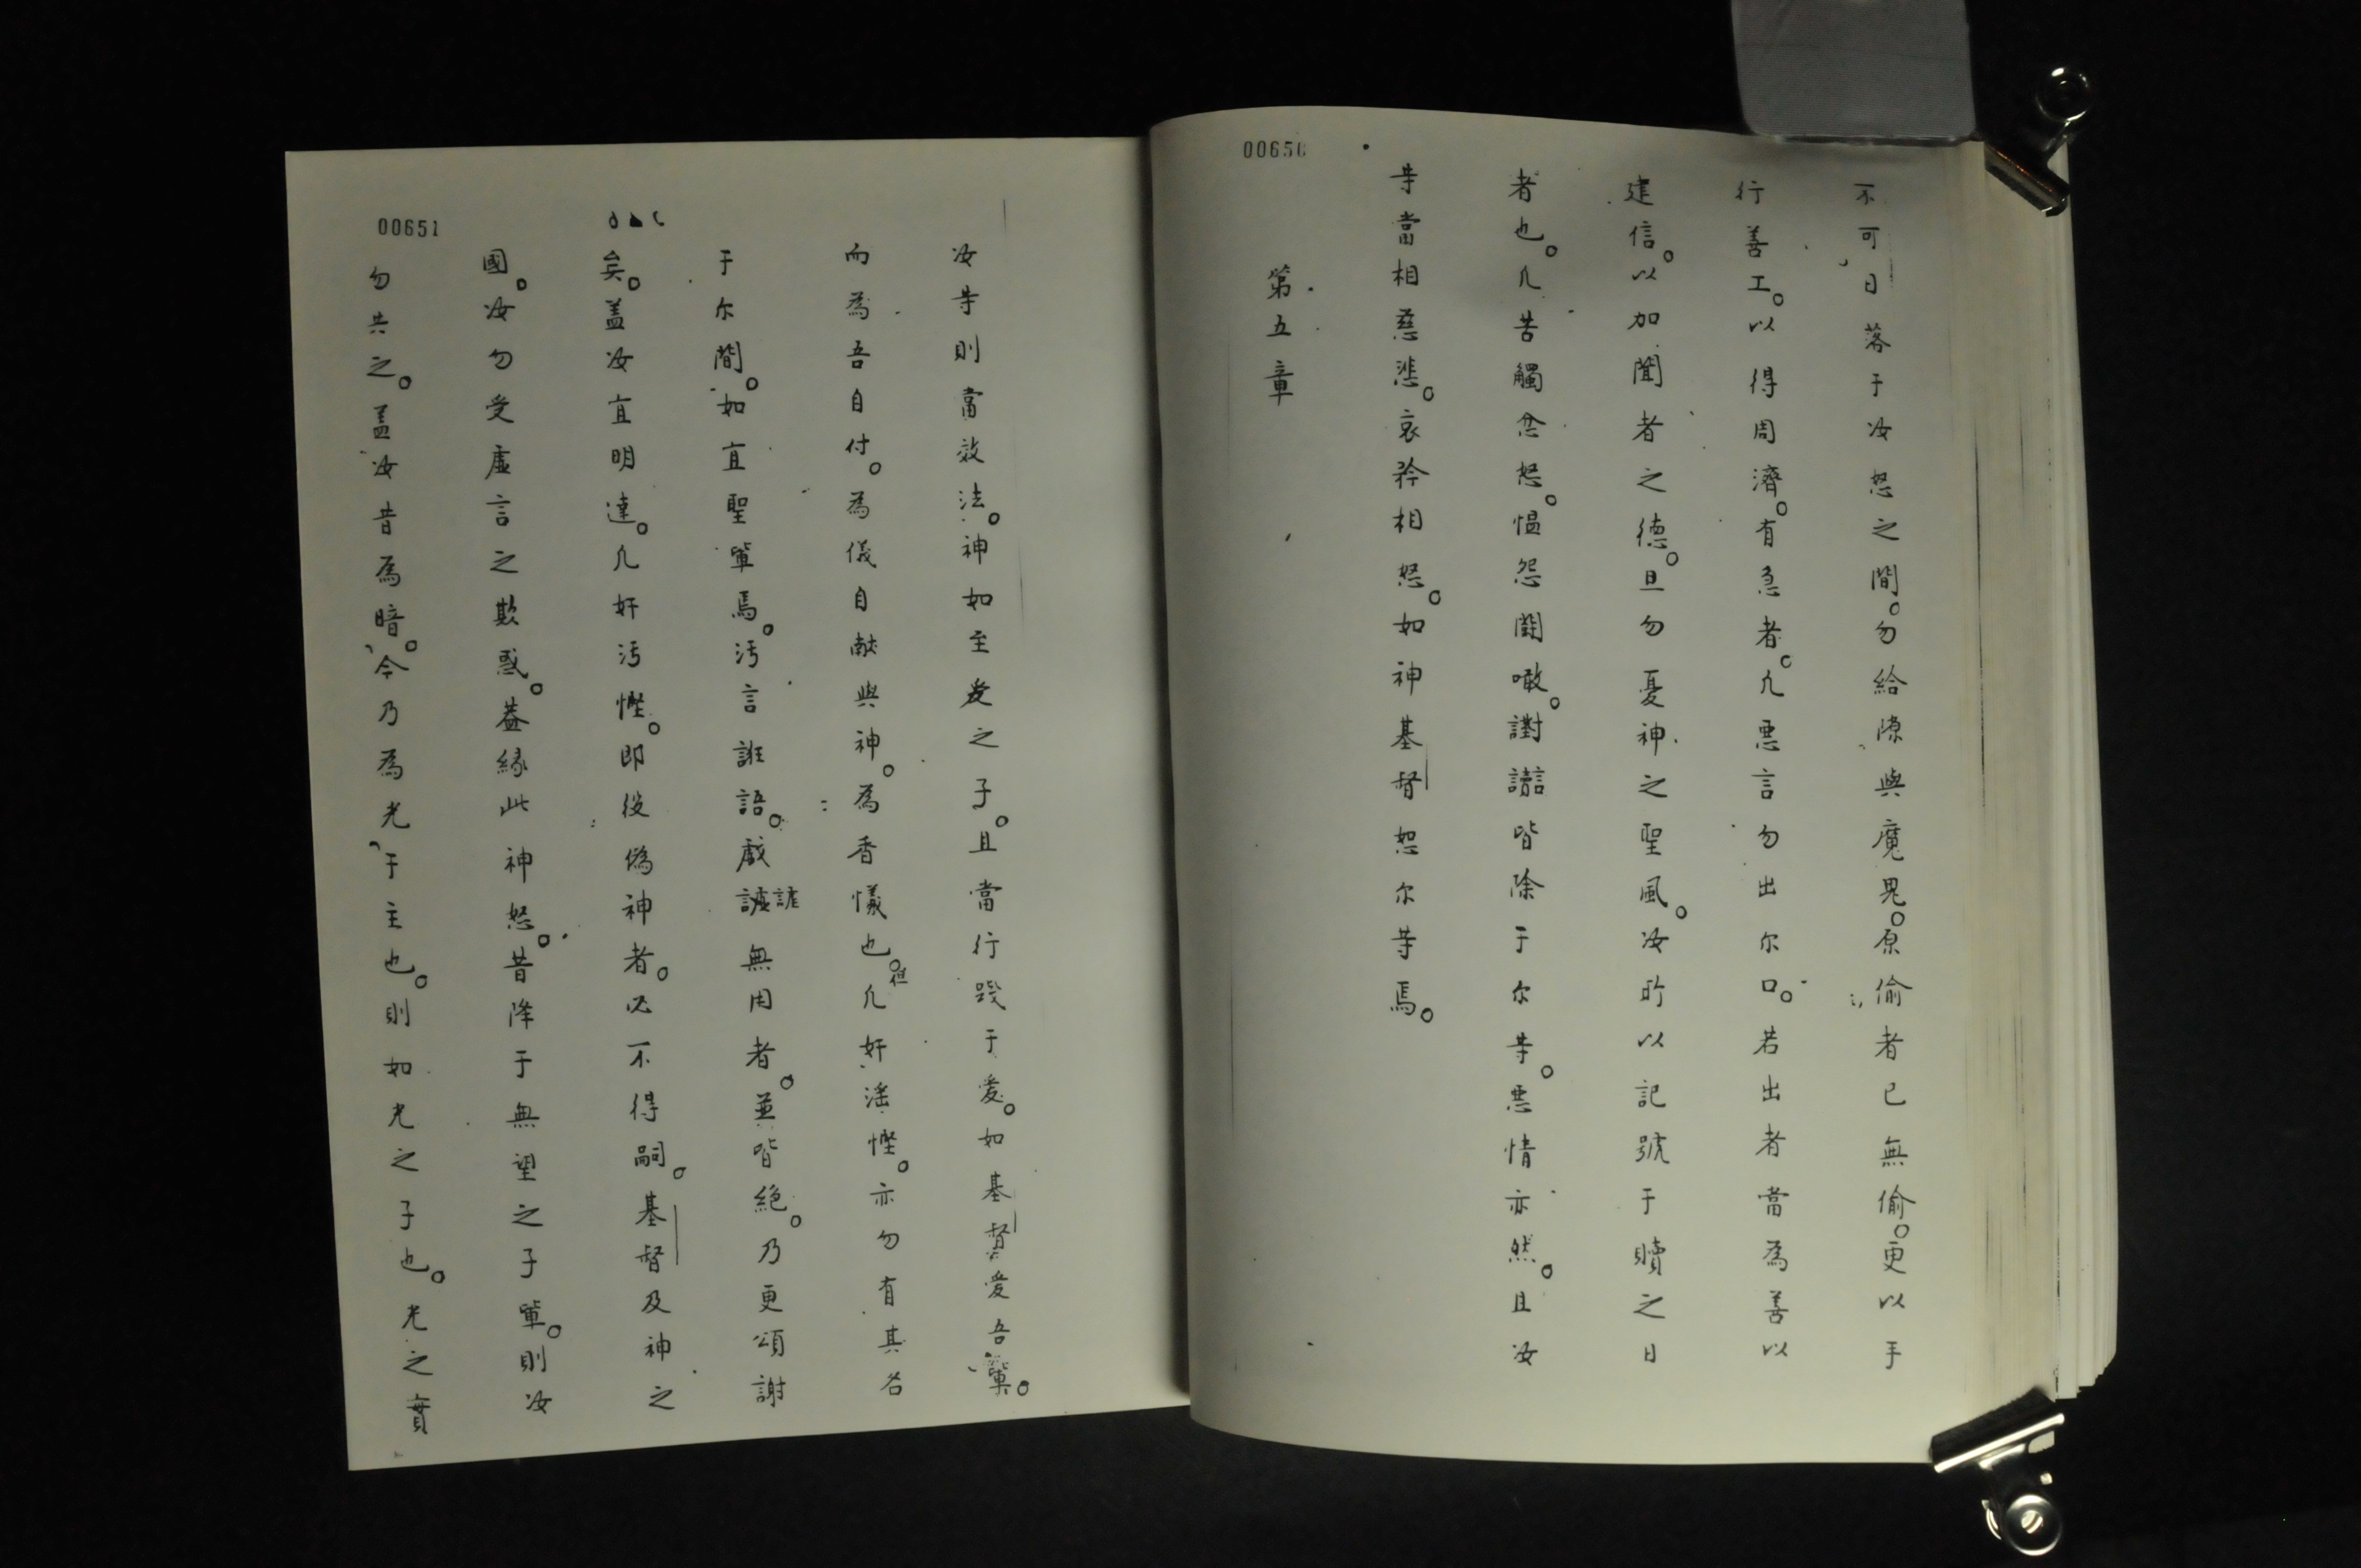 00650
不可日落于汝怒之間。勿給隙與魔鬼。原偷者已無偷。更以手
行善工。以得周濟。有急者。凢悪言勿出尔口。若出者當為善以
建信。以加聞者之德。且勿憂神之聖風。汝所以記號于贖之日
者也。凢苦觸忿怒。愠怨鬧噉。讟皆除于尔等。悪情亦然。且汝
等當相慈悲。哀矜相恕。如神基督恕尔等焉。
第五章
汝等則當效法。神如至爱之子。且當行踐于爱。如基督爱吾輩。
而為吾自付。為儀自献與神。為香儀也。但凢奸滛慳。亦勿有其名
于尔間。如宜聖軰焉。汚言誑語。戯謔無用者。並皆絕。乃更頌謝
矣。盖汝宜明達。凢奸汚慳。即役偽神者。必不得嗣。基督及神之
國。汝勿受虛言之欺惑。葢緣此神怒。昔降于無望之子軰。則汝
勿共之。盖汝昔為暗。今乃為光于主也。則如光之子也。光之實
00651